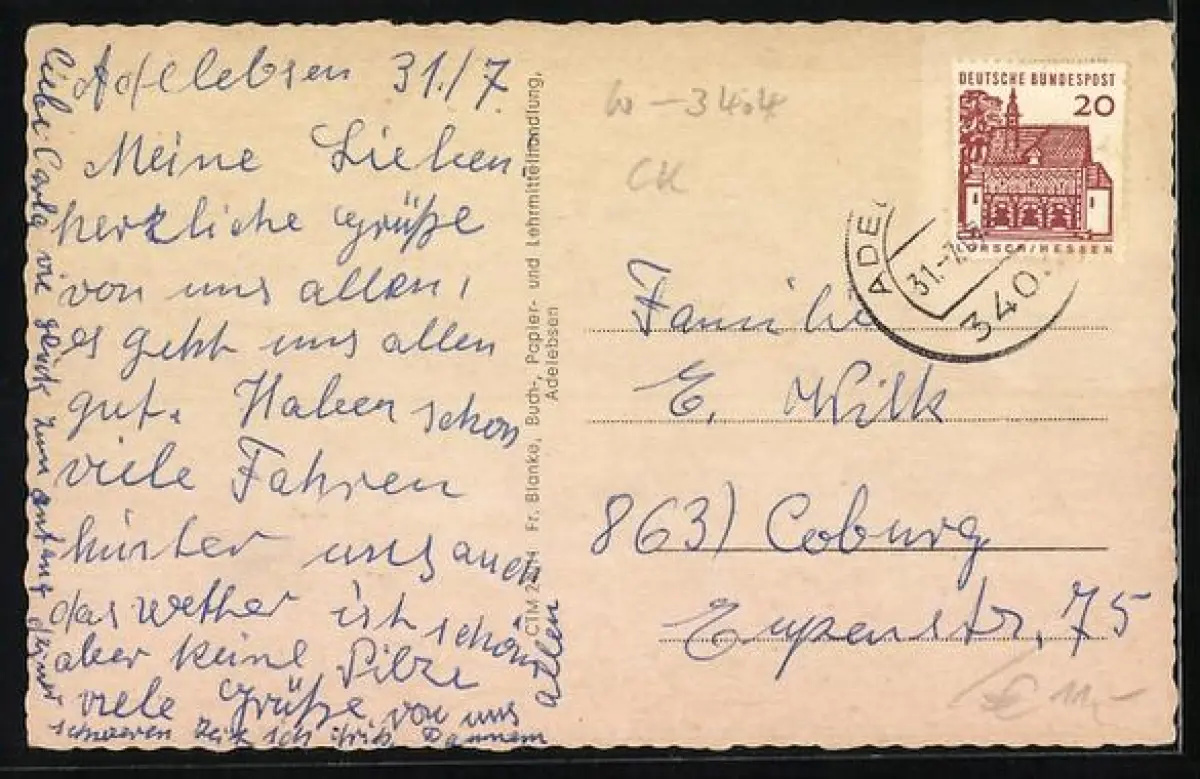 Adelebsen 31./7.
Meine Lieben
herzliche Grüße
von uns allen,
es geht uns allen
gut. Haben schon
viele Fahren
hinter uns auch
das wether ist schön
aber keine Pilze
viele Grüße von uns
allen
Liebe Carla viel glück zum anfang deiner
schweren Zeit ich
Fr. Blanke, Buch-, Papier- und Lehrmittelhandlung,
Adelebsen
W-3404
CK
DEUTSCHE BUNDESPOST
20
LORSCH/HESSEN
ADE
31.-7.
340
Familie
E. Wilk
863) Coburg
75
€ 11,-